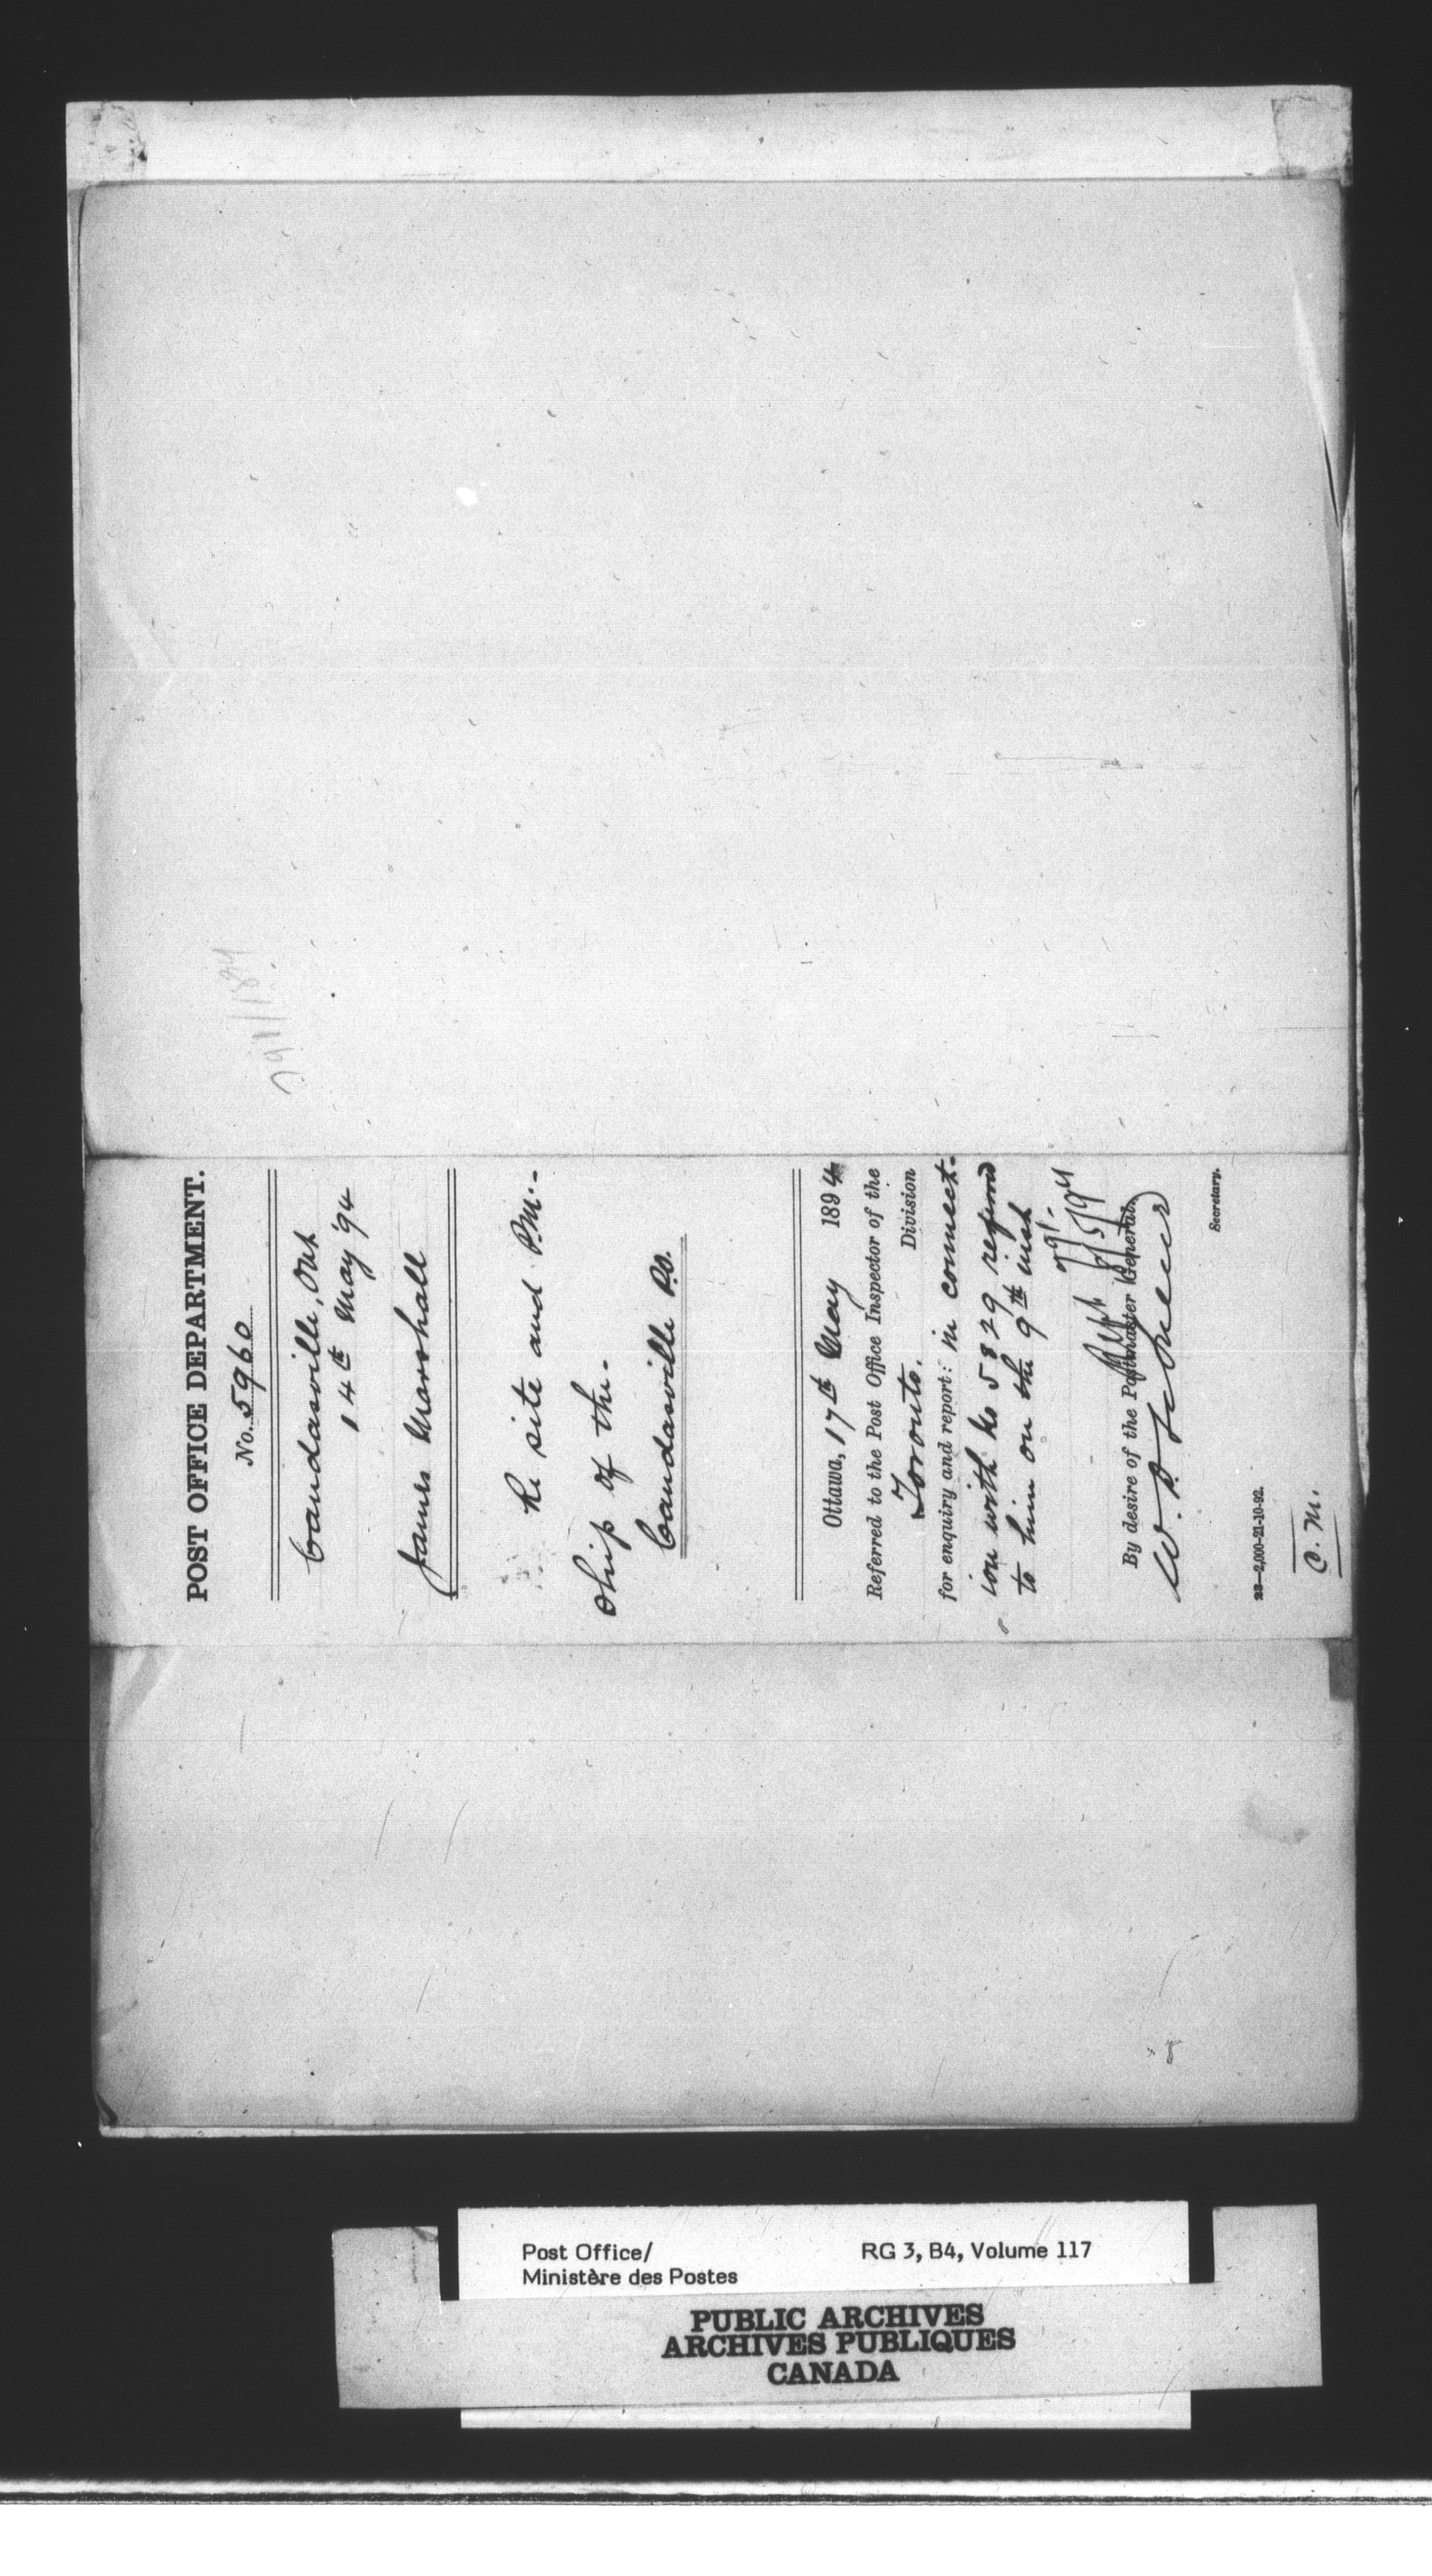 POST OFFICE DEPARTMENT.
No. 5960
Candasville, Ont
14th May '94
James Marshall
Re site and P.M.-
ship of the
Candasville P.O.
Ottawa, 17th May 1894
Referred to the Post Office Inspector of the
Toronto. Division
for enquiry and report: in connect-
ion with No 5829 referred
to him on the 9th inst
By desire of the Postmaster General,
Secretary.
23—2,000-21-10-92.
C. M.
Post Office/
Ministère des Postes
RG 3, B4, Volume 117
PUBLIC ARCHIVES
ARCHIVES PUBLIQUES
CANADA